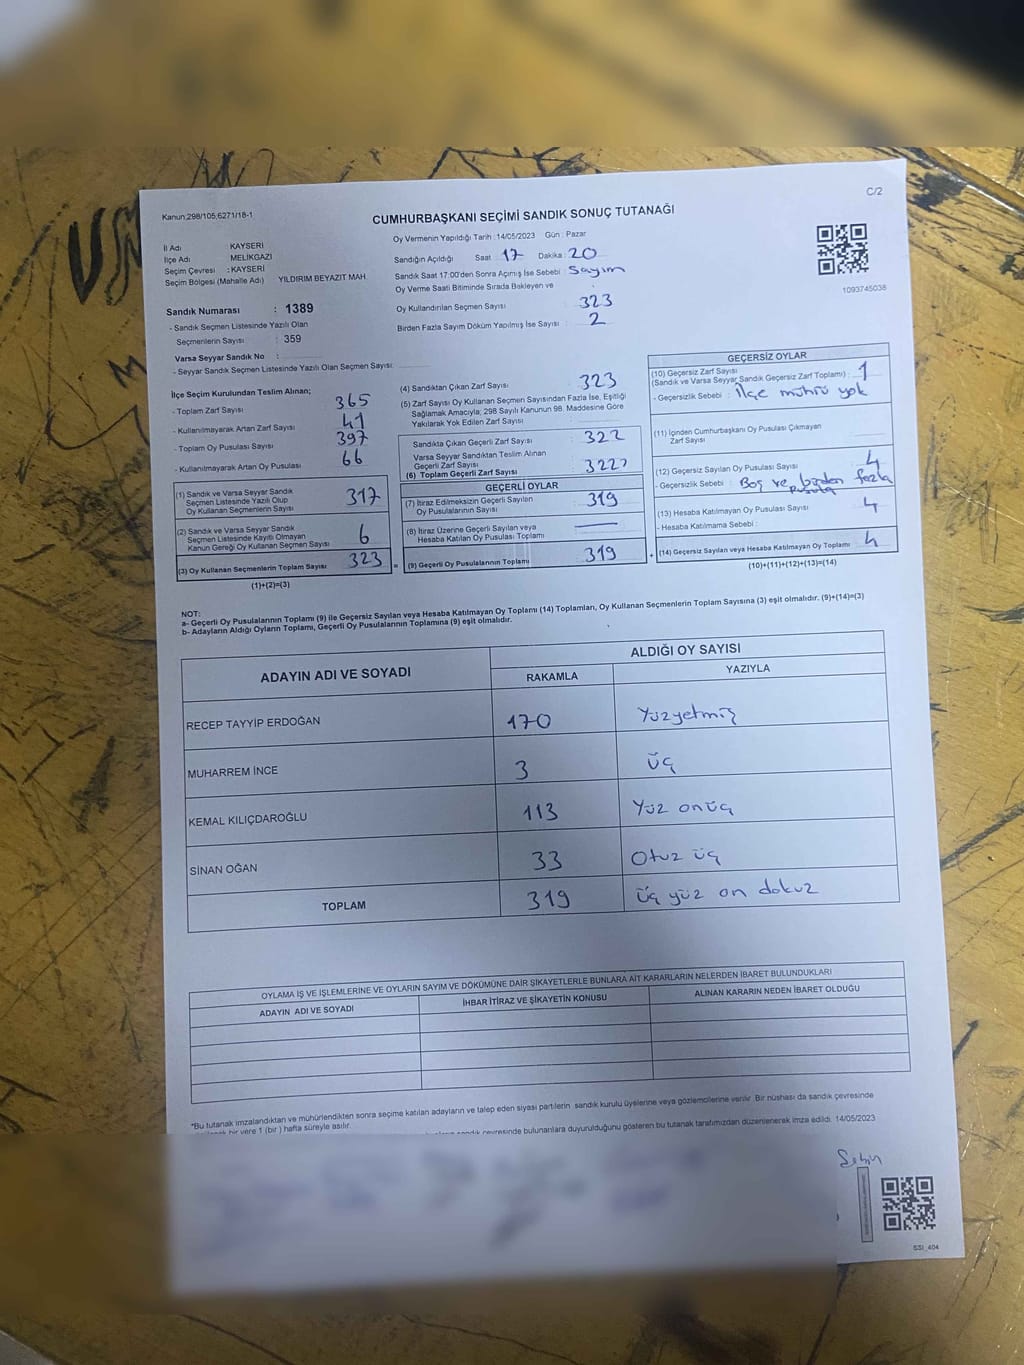 C/2
Kanun;298/105;6271/18-1
CUMHURBAŞKANI SEÇİMİ SANDIK SONUÇ TUTANAĞI
İl Adı : KAYSERİ
İlçe Adı MELİKGAZİ
Seçim Çevresi : KAYSERİ
Seçim Bölgesi (Mahalle Adı) YILDIRIM BEYAZIT MAH.
Oy Vermenin Yapıldığı Tarih :14/05/2023 Gün : Pazar
Sandığın Açıldığı Saat 17 Dakika : 20
Sandık Saat 17:00'den Sonra Açımış İse Sebebi : Sayım
Oy Verme Saati Bitiminde Sırada Bekleyen ve
Oy Kullandırılan Seçmen Sayısı : 323
Birden Fazla Sayım Döküm Yapılmış İse Sayısı : 2
1093745038
Sandık Numarası : 1389
- Sandık Seçmen Listesinde Yazılı Olan
Seçmenlerin Sayısı : 359
Varsa Seyyar Sandık No :
- Seyyar Sandık Seçmen Listesinde Yazılı Olan Seçmen Sayısı:
İlçe Seçim Kurulundan Teslim Alınan;
- Toplam Zarf Sayısı 365
- Kullanılmayarak Artan Zarf Sayısı 41
- Toplam Oy Pusulası Sayısı 397
- Kullanılmayarak Artan Oy Pusulası 66
(1) Sandık ve Varsa Seyyar Sandık
Seçmen Listesinde Yazılı Olup
Oy Kullanan Seçmenlerin Sayısı 317
(2) Sandık ve Varsa Seyyar Sandık
Seçmen Listesinde Kayıtlı Olmayan
Kanun Gereği Oy Kullanan Seçmen Sayısı 6
(3) Oy Kullanan Seçmenlerin Toplam Sayısı 323
(1)+(2)=(3)
(4) Sandıktan Çıkan Zarf Sayısı : 323
(5) Zarf Sayısı Oy Kullanan Seçmen Sayısından Fazla İse, Eşitliği
Sağlamak Amacıyla; 298 Sayılı Kanunun 98. Maddesine Göre
Yakılarak Yok Edilen Zarf Sayısı :
Sandıkta Çıkan Geçerli Zarf Sayısı : 322
Varsa Seyyar Sandıktan Teslim Alınan
Geçerli Zarf Sayısı
(6) Toplam Geçerli Zarf Sayısı : 322
GEÇERLİ OYLAR
(7) İtiraz Edilmeksizin Geçerli Sayılan
Oy Pusulalarının Sayısı : 319
(8) İtiraz Üzerine Geçerli Sayılan veya
Hesaba Katılan Oy Pusulası Toplamı
= (9) Geçerli Oy Pusulalarının Toplamı 319
GEÇERSİZ OYLAR
(10) Geçersiz Zarf Sayısı
(Sandık ve Varsa Seyyar Sandık Geçersiz Zarf Toplamı) : 1
- Geçersizlik Sebebi : İlçe mührü yok
(11) İçinden Cumhurbaşkanı Oy Pusulası Çıkmayan
Zarf Sayısı
(12) Geçersiz Sayılan Oy Pusulası Sayısı : 4
- Geçersizlik Sebebi : Boş ve birden fazla
pusula
(13) Hesaba Katılmayan Oy Pusulası Sayısı 4
- Hesaba Katılmama Sebebi :
+ (14) Geçersiz Sayılan veya Hesaba Katılmayan Oy Toplamı 4
(10)+(11)+(12)+(13)=(14)
NOT:
a- Geçerli Oy Pusulalarının Toplamı (9) ile Geçersiz Sayılan veya Hesaba Katılmayan Oy Toplamı (14) Toplamları, Oy Kullanan Seçmenlerin Toplam Sayısına (3) eşit olmalıdır. (9)+(14)=(3)
b- Adayların Aldığı Oyların Toplamı, Geçerli Oy Pusulalarının Toplamına (9) eşit olmalıdır.
ADAYIN ADI VE SOYADI ALDIĞI OY SAYISI
RAKAMLA YAZIYLA
RECEP TAYYİP ERDOĞAN 170 Yüzyetmiş
MUHARREM İNCE 3 üç
KEMAL KILIÇDAROĞLU 113 Yüz onüç
SİNAN OĞAN 33 Otuz üç
TOPLAM 319 üç yüz on dokuz
OYLAMA İŞ VE İŞLEMLERİNE VE OYLARIN SAYIM VE DÖKÜMÜNE DAİR ŞİKAYETLERLE BUNLARA AİT KARARLARIN NELERDEN İBARET BULUNDUKLARI
ADAYIN ADI VE SOYADI İHBAR İTİRAZ VE ŞİKAYETİN KONUSU ALINAN KARARIN NEDEN İBARET OLDUĞU
*Bu tutanak imzalandıktan ve mühürlendikten sonra seçime katılan adayların ve talep eden siyasi partilerin sandık kurulu üyelerine veya gözlemcilerine verilir. Bir nüshası da sandık çevresinde
bir yere 1 (bir) hafta süreyle asılır.
sandık çevresinde bulunanlara duyurulduğunu gösteren bu tutanak tarafımızdan düzenlenerek imza edildi. 14/05/2023
SSI_404